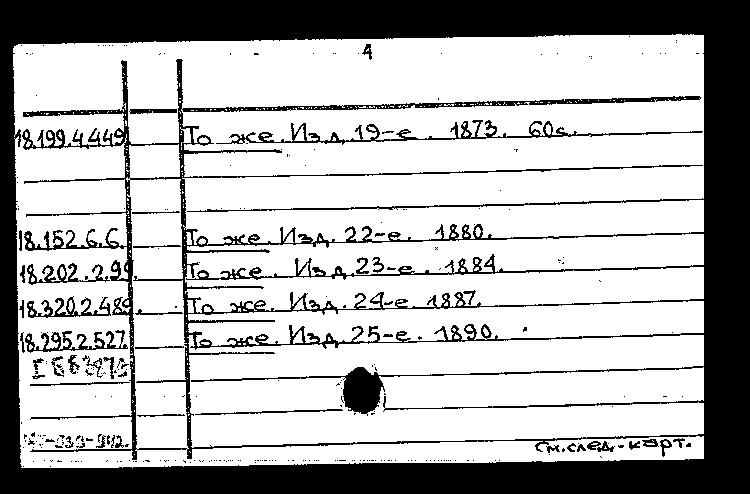 4
18.199.4.449. То же. Изд. 19-е. 1873. 60с.
18.152.6.6. То же. Изд. 22-е. 1880.
18.202.2.99. То же. Изд. 23-е. 1884.
18.320.2.489. То же. Изд. 24-е. 1887.
18.295.2.527. То же. Изд. 25-е. 1890.
См.след.-карт.